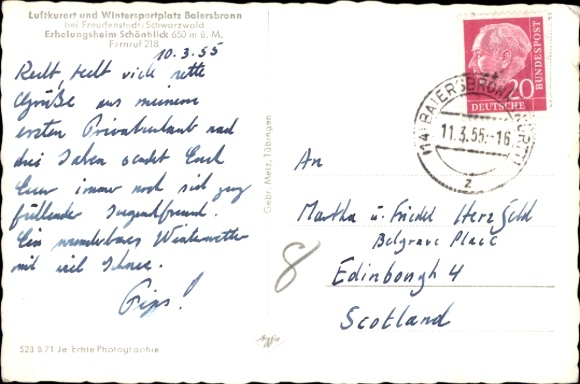 Luftkurort und Wintersportplatz Baiersbronn
bei Freudenstadt/Schwarzwald
Erholungsheim Schönblick 650 m ü. M.
Fernruf 218
10.3.55
Recht, recht viele nette
Grüße aus meinem
ersten Privaturlaub nach
drei Jahren sendet Euch
Euer immer noch sich
füllender Jugendfreund.
Ein wunderbares Winterwetter
mit viel Schnee.
Pips!
523 B 71 Je Echte Photographie
Gebr. Metz, Tübingen
20
DEUTSCHE
BUNDESPOST
(14) BAIERSBRONN
11.3.55.-16
z
An
Martha u. Friedel Herzfeld
Belgrave Place
Edinborgh 4
Scotland
8